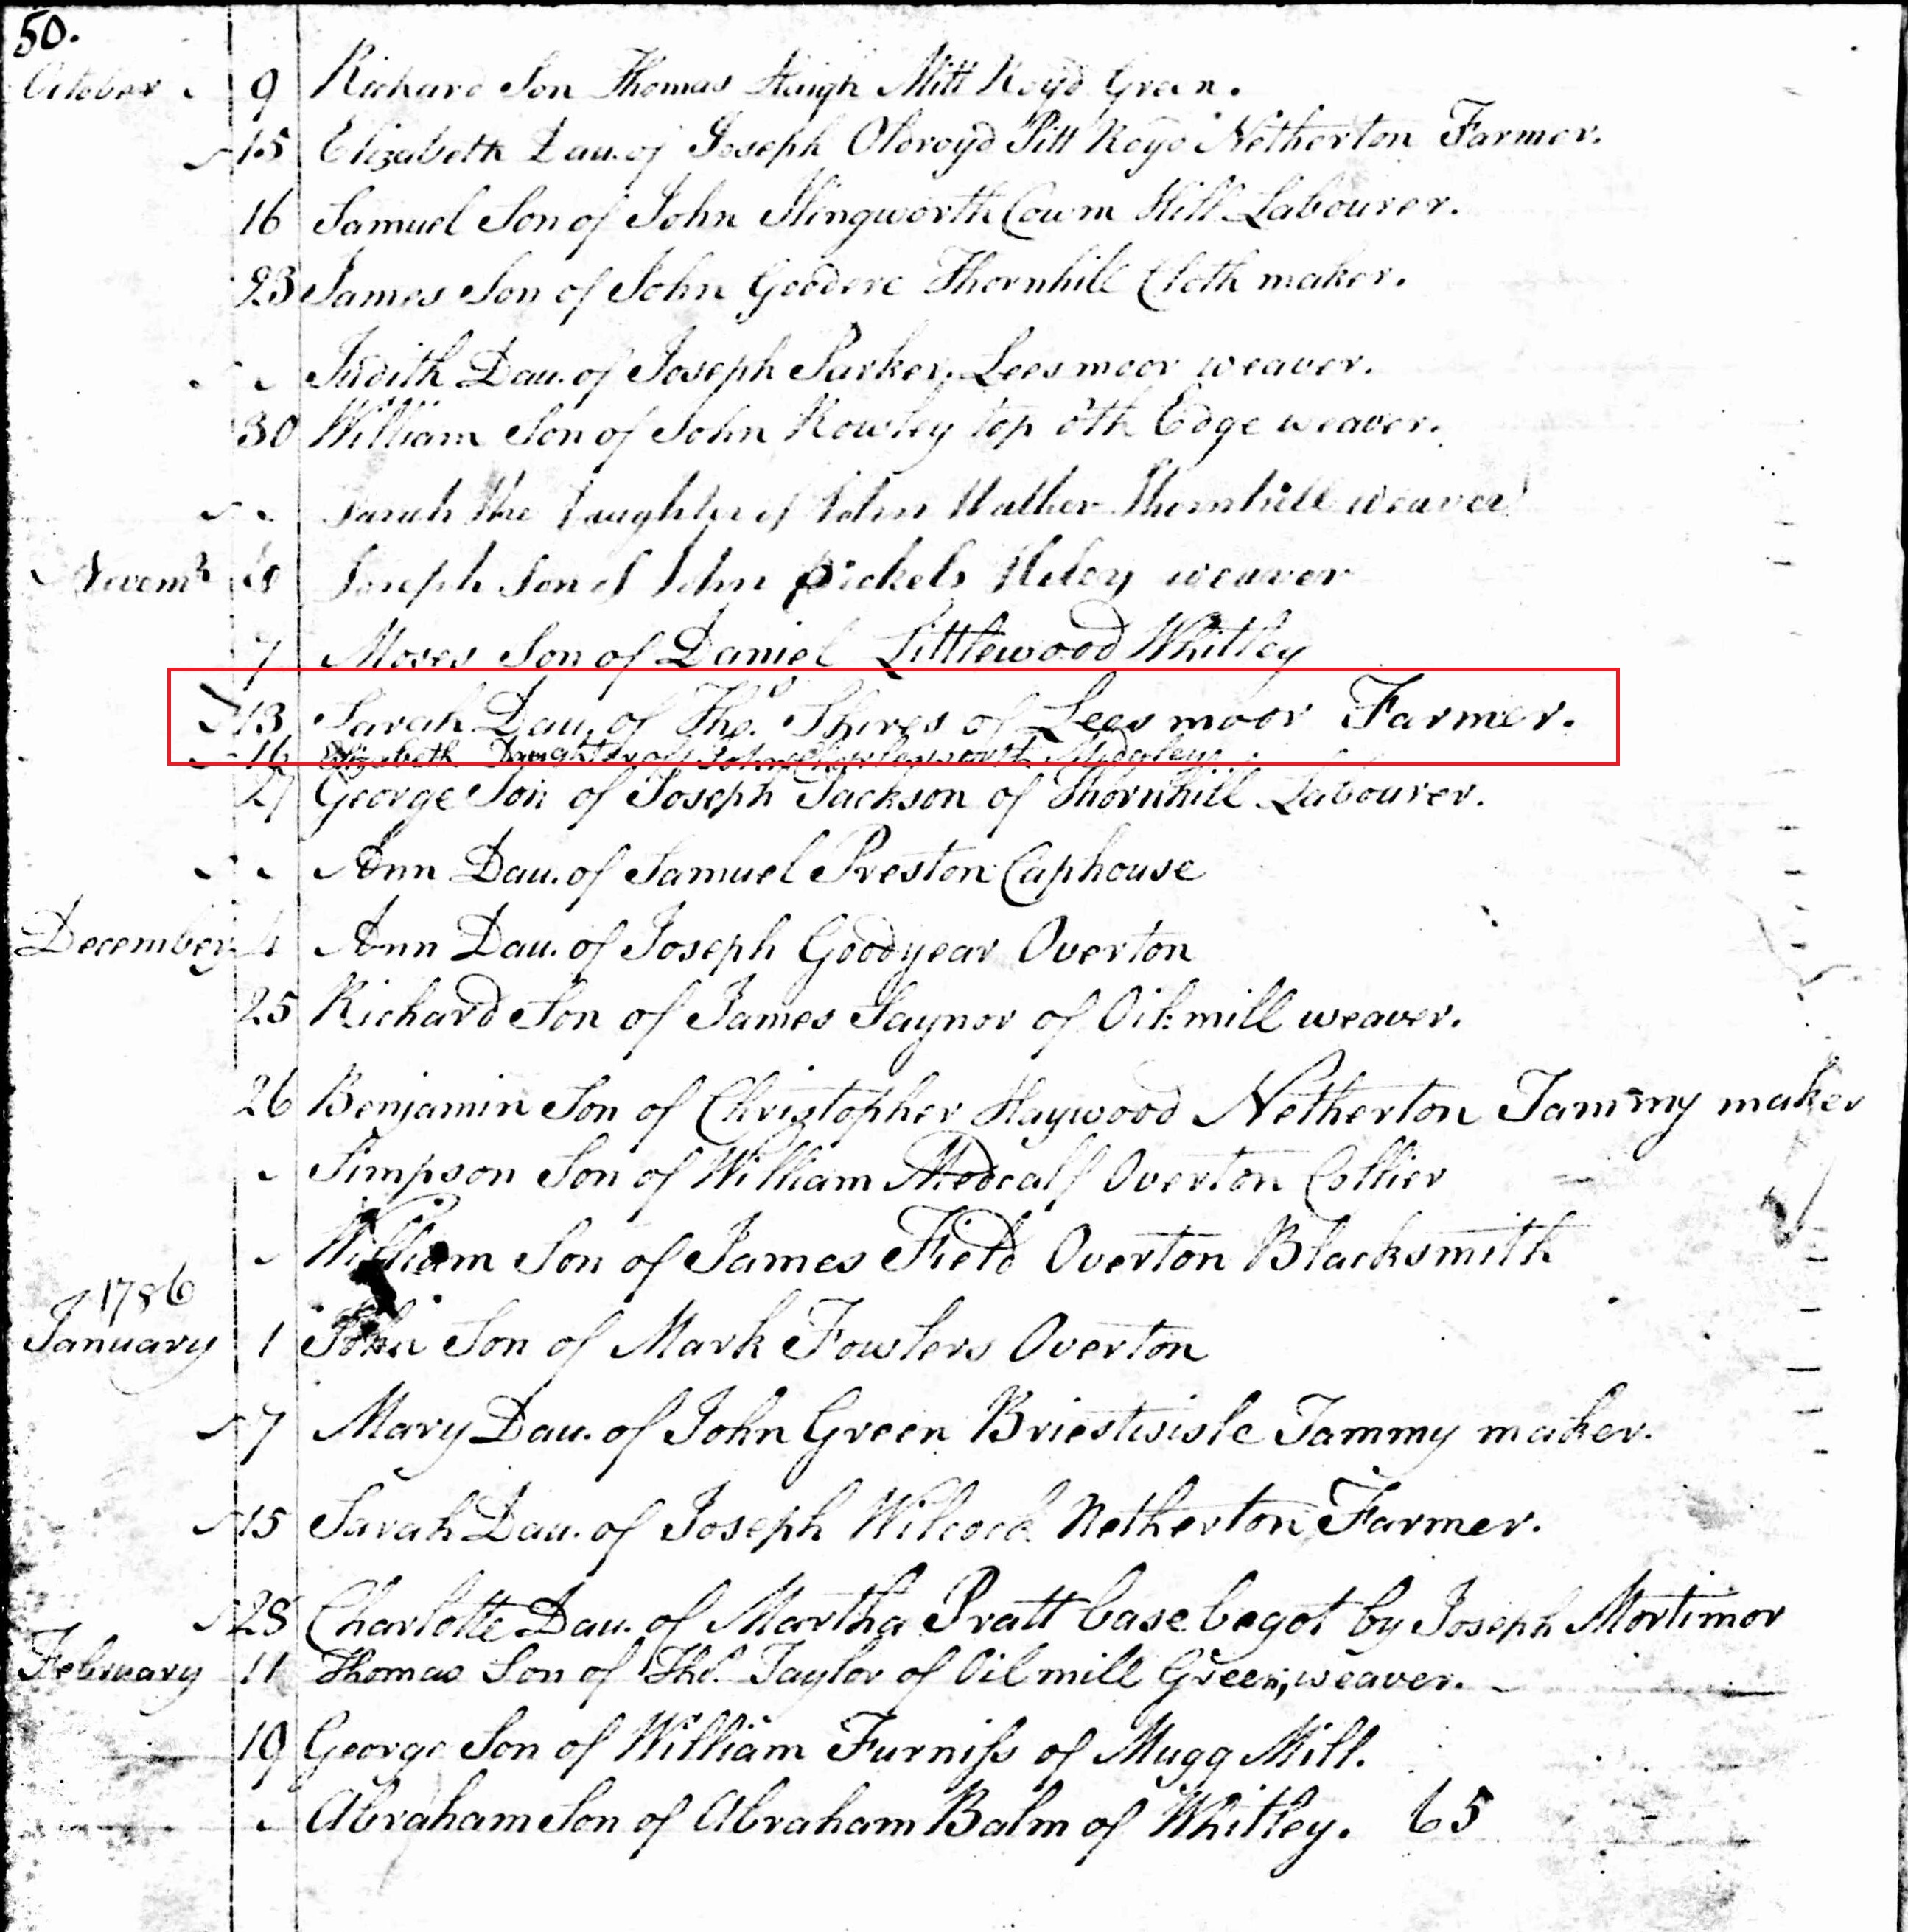 50.
October 9 Richard Son Thomas Haigh Mill Royd Green.
15 Elizabeth Dau. of Joseph Oldroyd Pitt Royd Netherton Farmer.
16 Samuel Son of John Illingworth Cowm Hill Labourer.
23 James Son of John Goodere Thornhill Cloth maker.
Judith Dau. of Joseph Parker, Leesmoor weaver.
30 William Son of John Rowley top o'th Edge weaver.
Sarah the Daughter of John Walker Thornhill weaver
Novemr John Joseph Son of John Pickels weaver
7 Moses Son of Daniel Littlewood Whitley
13 Sarah Dau. of Tho.s Shires of Lees moor Farmer.
16 Elizabeth Daughter of John Charlesworth Midgley.
27 George Son of Joseph Jackson of Thornhill Labourer.
Ann Dau. of Samuel Preston Caphouse
December 4 Ann Dau. of Joseph Goodyear Overton
25 Richard Son of James Taynor of Oilmill weaver.
26 Benjamin Son of Christopher Haywood Netherton Tammy maker
Simpson Son of William Medcalf Overton Collier
William Son of James Field Overton Blacksmith
1786
January 1 John Son of Mark Fowlers Overton
7 Mary Dau. of John Green Briestwisle Tammy maker.
15 Sarah Dau. of Joseph Wilcock Netherton Farmer.
28 Charlotte Dau. of Martha Pratt base begot by Joseph Mortimor
February 11 Thomas Son of Tho.s Taylor of Oilmill Green, weaver.
19 George Son of William Furniſs of Mugg Mill.
Abraham Son of Abraham Balm of Whitley. 65